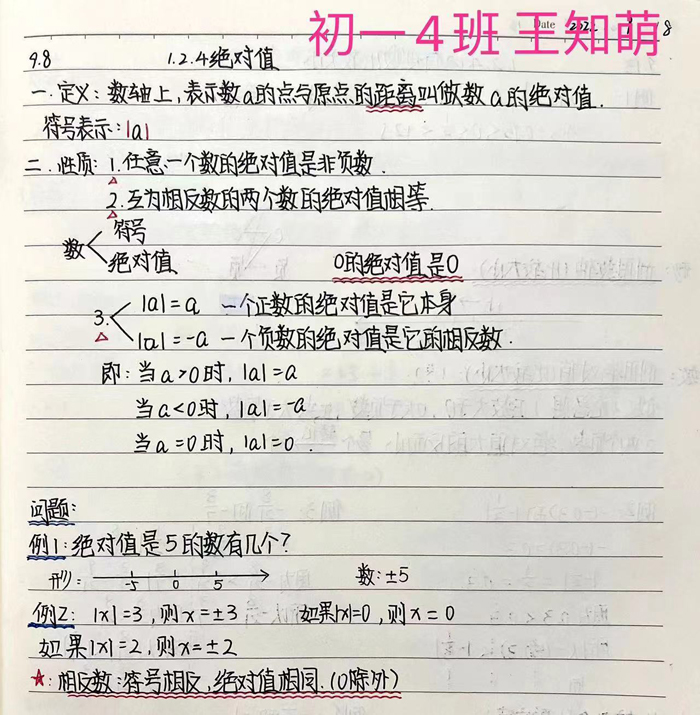 初一4班 王知萌
Date
9.8 1.2.4绝对值
一.定义:数轴上,表示数a的点与原点的距离叫做数a的绝对值.
符号表示:|a|
二.性质:1.任意一个数的绝对值是非负数.
2.互为相反数的两个数的绝对值相等.
数 符号
绝对值 0的绝对值是0
3. |a|=a 一个正数的绝对值是它本身
|a|=-a 一个负数的绝对值是它的相反数.
即:当a>0时,|a|=a
当a<0时,|a|=-a
当a=0时,|a|=0.
问题:
例1:绝对值是5的数有几个?
形: -5 0 5 数:±5
例2: |x|=3,则x=±3 如果|x|=0,则x=0
如果|x|=2,则x=±2
★:相反数:符号相反,绝对值相同.(0除外)